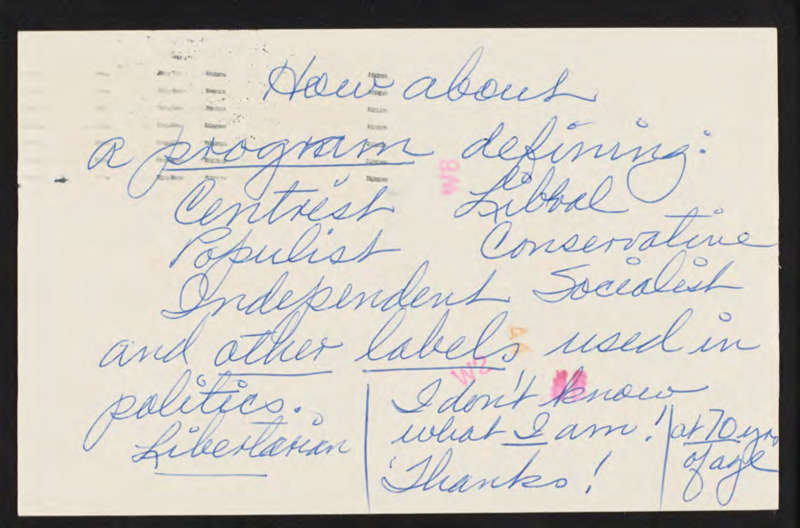 How about
a program defining:
Centrist Libbal
Populist Conservative
Independent Socialist
and other labels used in
politics.
Libertarian
I don't know
what I am!
Thanks!
at 70 yrs
of age
WB